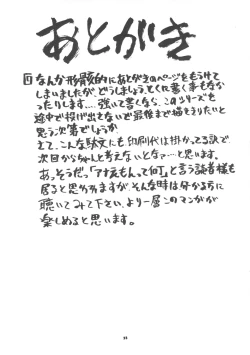 あとがき
□なんか形骸的にあとがきのページをもうけて
しまいましたが、どうしましょう。とくに書く事もなか
ったりします....。強いて書くなら、このシリーズも
途中で投げ出さないで最後まで描ききりたいと
思う次第でしょうか
さて、こんな駄文にも印刷代は掛かってる訳で、
次回からちゃんと考えないとなァ…と思います。
あっそうだっ「アナえもんって何」と言う読者様も
居ると思われますが、そんな時は分かる方に
聴いてみて下さい。より一層このマンガが
楽しめると思います。